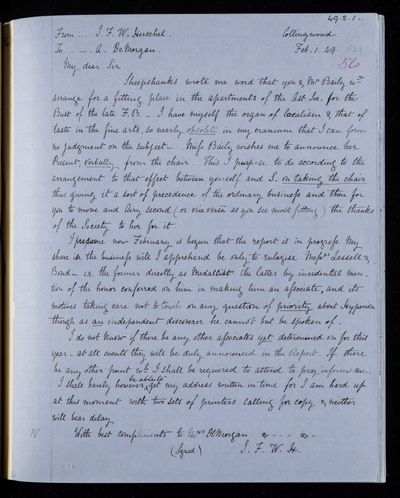 49.2.1..
From --- J. F. W. Herschel. Collingwood
To --- A. DeMorgan. Feb. 1. 49.
560
My dear Sir
Sheepshanks wrote me word that you & Mr Baily wd
arrange for a fitting place in the apartments of the Ast Soc. for the
Bust of the late F.B. - I have myself the organ of localism & that of
taste in the fine arts, so nearly obsolete in my cranium that I can form
no judgment on the subject - Miss Baily wishes me to announce her
Present, verbally from the chair. This I purpose to do according to the
arrangement to that effect between yourself and I. on taking the chair
thus giving it a sort of precedence of the ordinary business and then for
you to move and Airy second (or vice versa as you see most fitting) the thanks
of the Society to her for it
I presume now February is begun that the report is in progress. My
share in the business will I apprehend be only to eulogise Messrs Lassell &
Bond - i.e. the former directly as Medallist the latter by incidental men-
tion of the honor conferred on him in making him an associate, and its
motives taking care not to touch on any question of priority about Hyperion
though as an independent discoverer he cannot but be spoken of.
I do not know if there be any other associates yet determined on for this
year - at all events they will be duly announced in the Report. If there
be any other point wh I shall be required to attend to pray inform me.
I shall barely however be able to get my address written in time for I am hard up
at this moment with two sets of printers calling for copy & neither
will bear delay
With best compliments to Mrs DeMorgan & --- &-
(Signed) J. F. W. H.